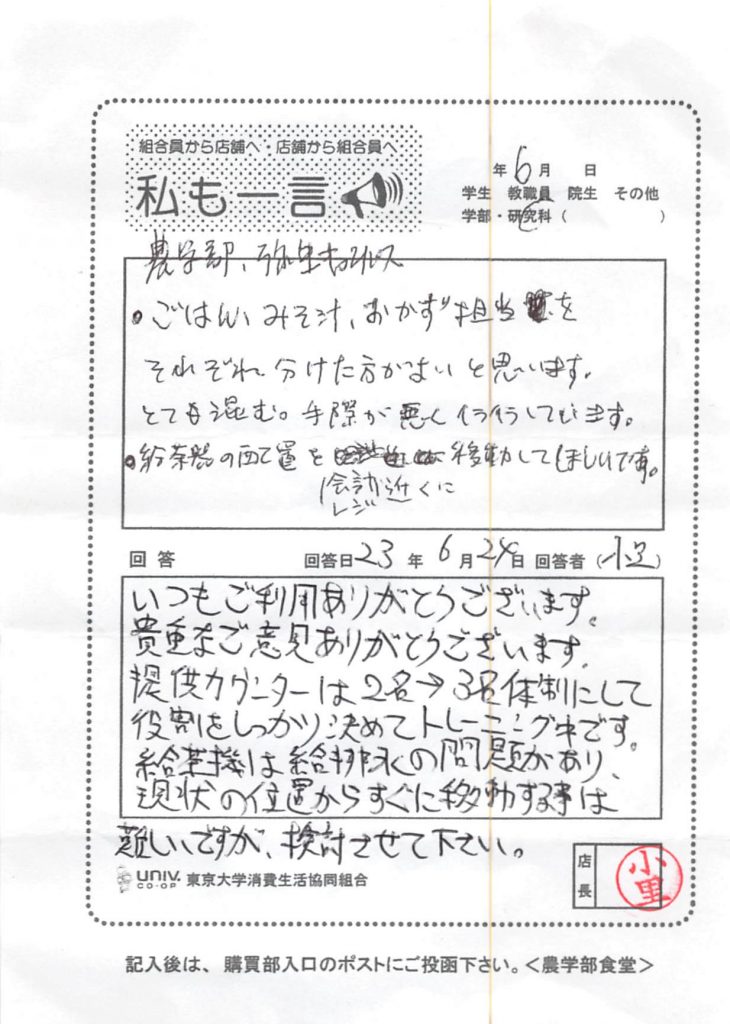 組合員から店舗へ・店舗から組合員へ
私も一言
年 6月 日
学生 教職員 院生 その他
学部・研究科( )
農学部、弥生キャンパス
・ごはん、みそ汁、おかず担当を
それぞれ分けた方がよいと思います。
とても混む。手際が悪く
・給茶器の配置を 移動してほしいです。
会計近くに
レジ
回答 回答日23年 6月24日 回答者(小里)
いつもご利用ありがとうございます。
貴重なご意見ありがとうございます。
提供カウンターは2名→3名体制にして
役割をしっかり決めてトレーニング中です。
給茶機は給排水の問題があり、
現状の位置からすぐに移動する事は
難しいですが、検討させて下さい。
UNIV. CO-OP 東京大学消費生活協同組合
店長
小里
記入後は、購買部入口のポストにご投函下さい。<農学部食堂>